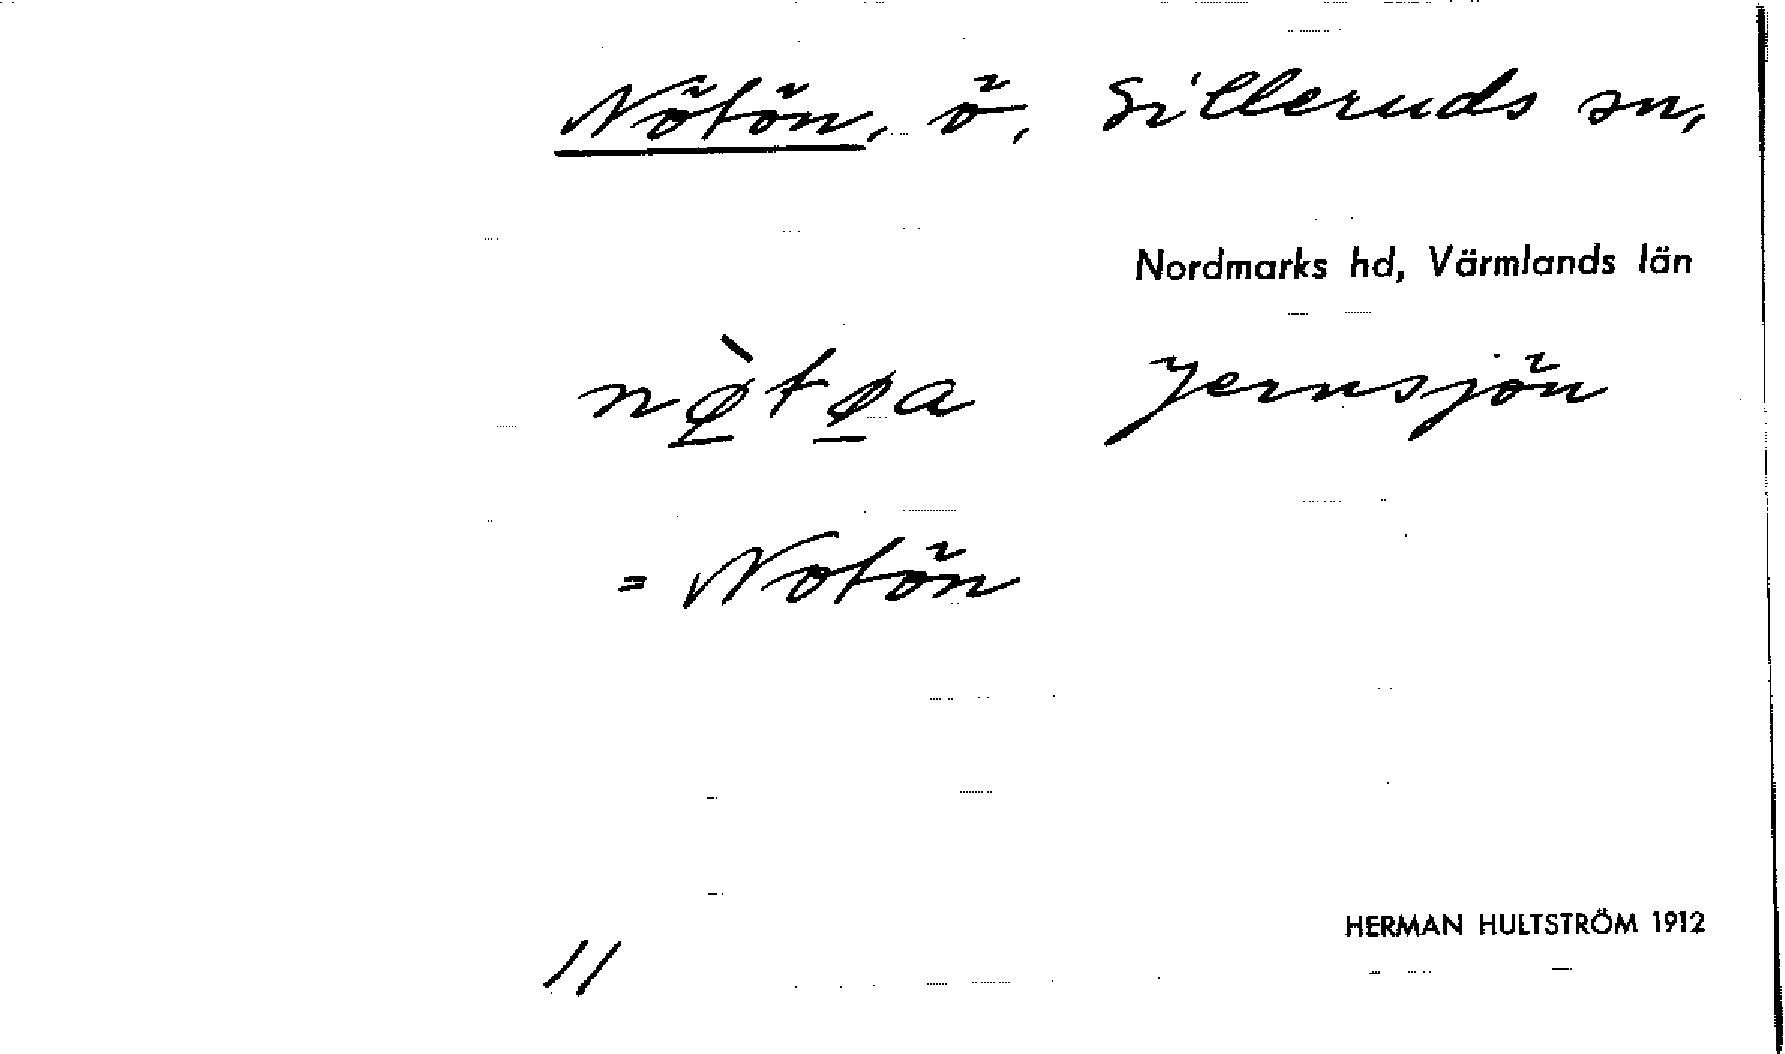 Nötön, ö, Silleruds sn,
Nordmarks hd, Värmlands län
nø̱̀tø̱a Jernsjön
= Notön
HERMAN HULTSTRÖM 1912
11